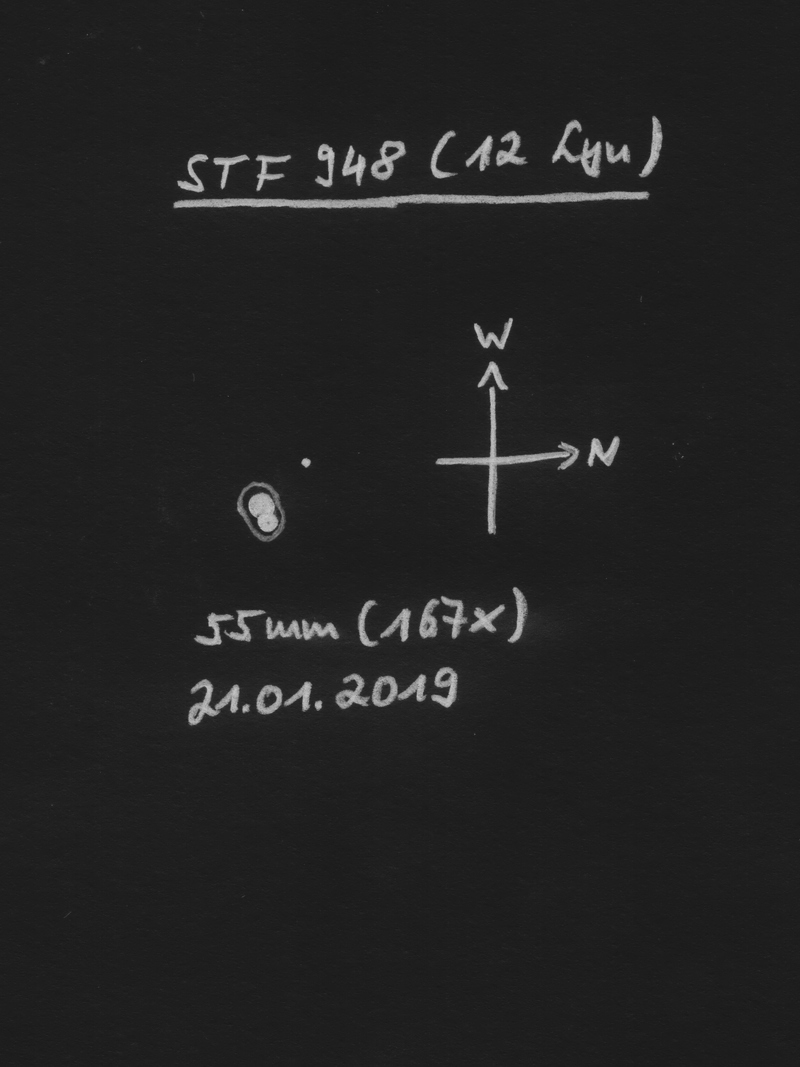 STF 948 (12 Lyn)
W
N
55mm (167x)
21.01.2019